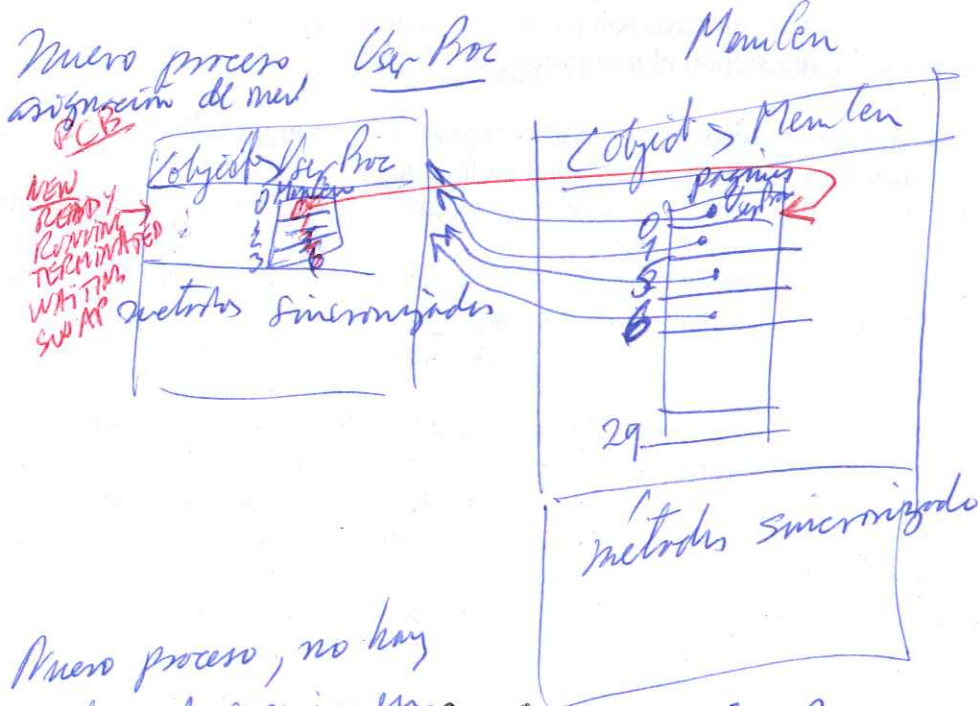 Nuevo proceso,
asignación de mem
User Proc
Memlen
PCB
NEW
READY
RUNNING
TERMINATED
WAITING
SWAP
<object> User Proc
Memlen
0
1
2
3
métodos sincronizados
<object> Memlen
páginas
User Proc
0
1
5
6
29
métodos sincronizado
Nuevo proceso, no hay